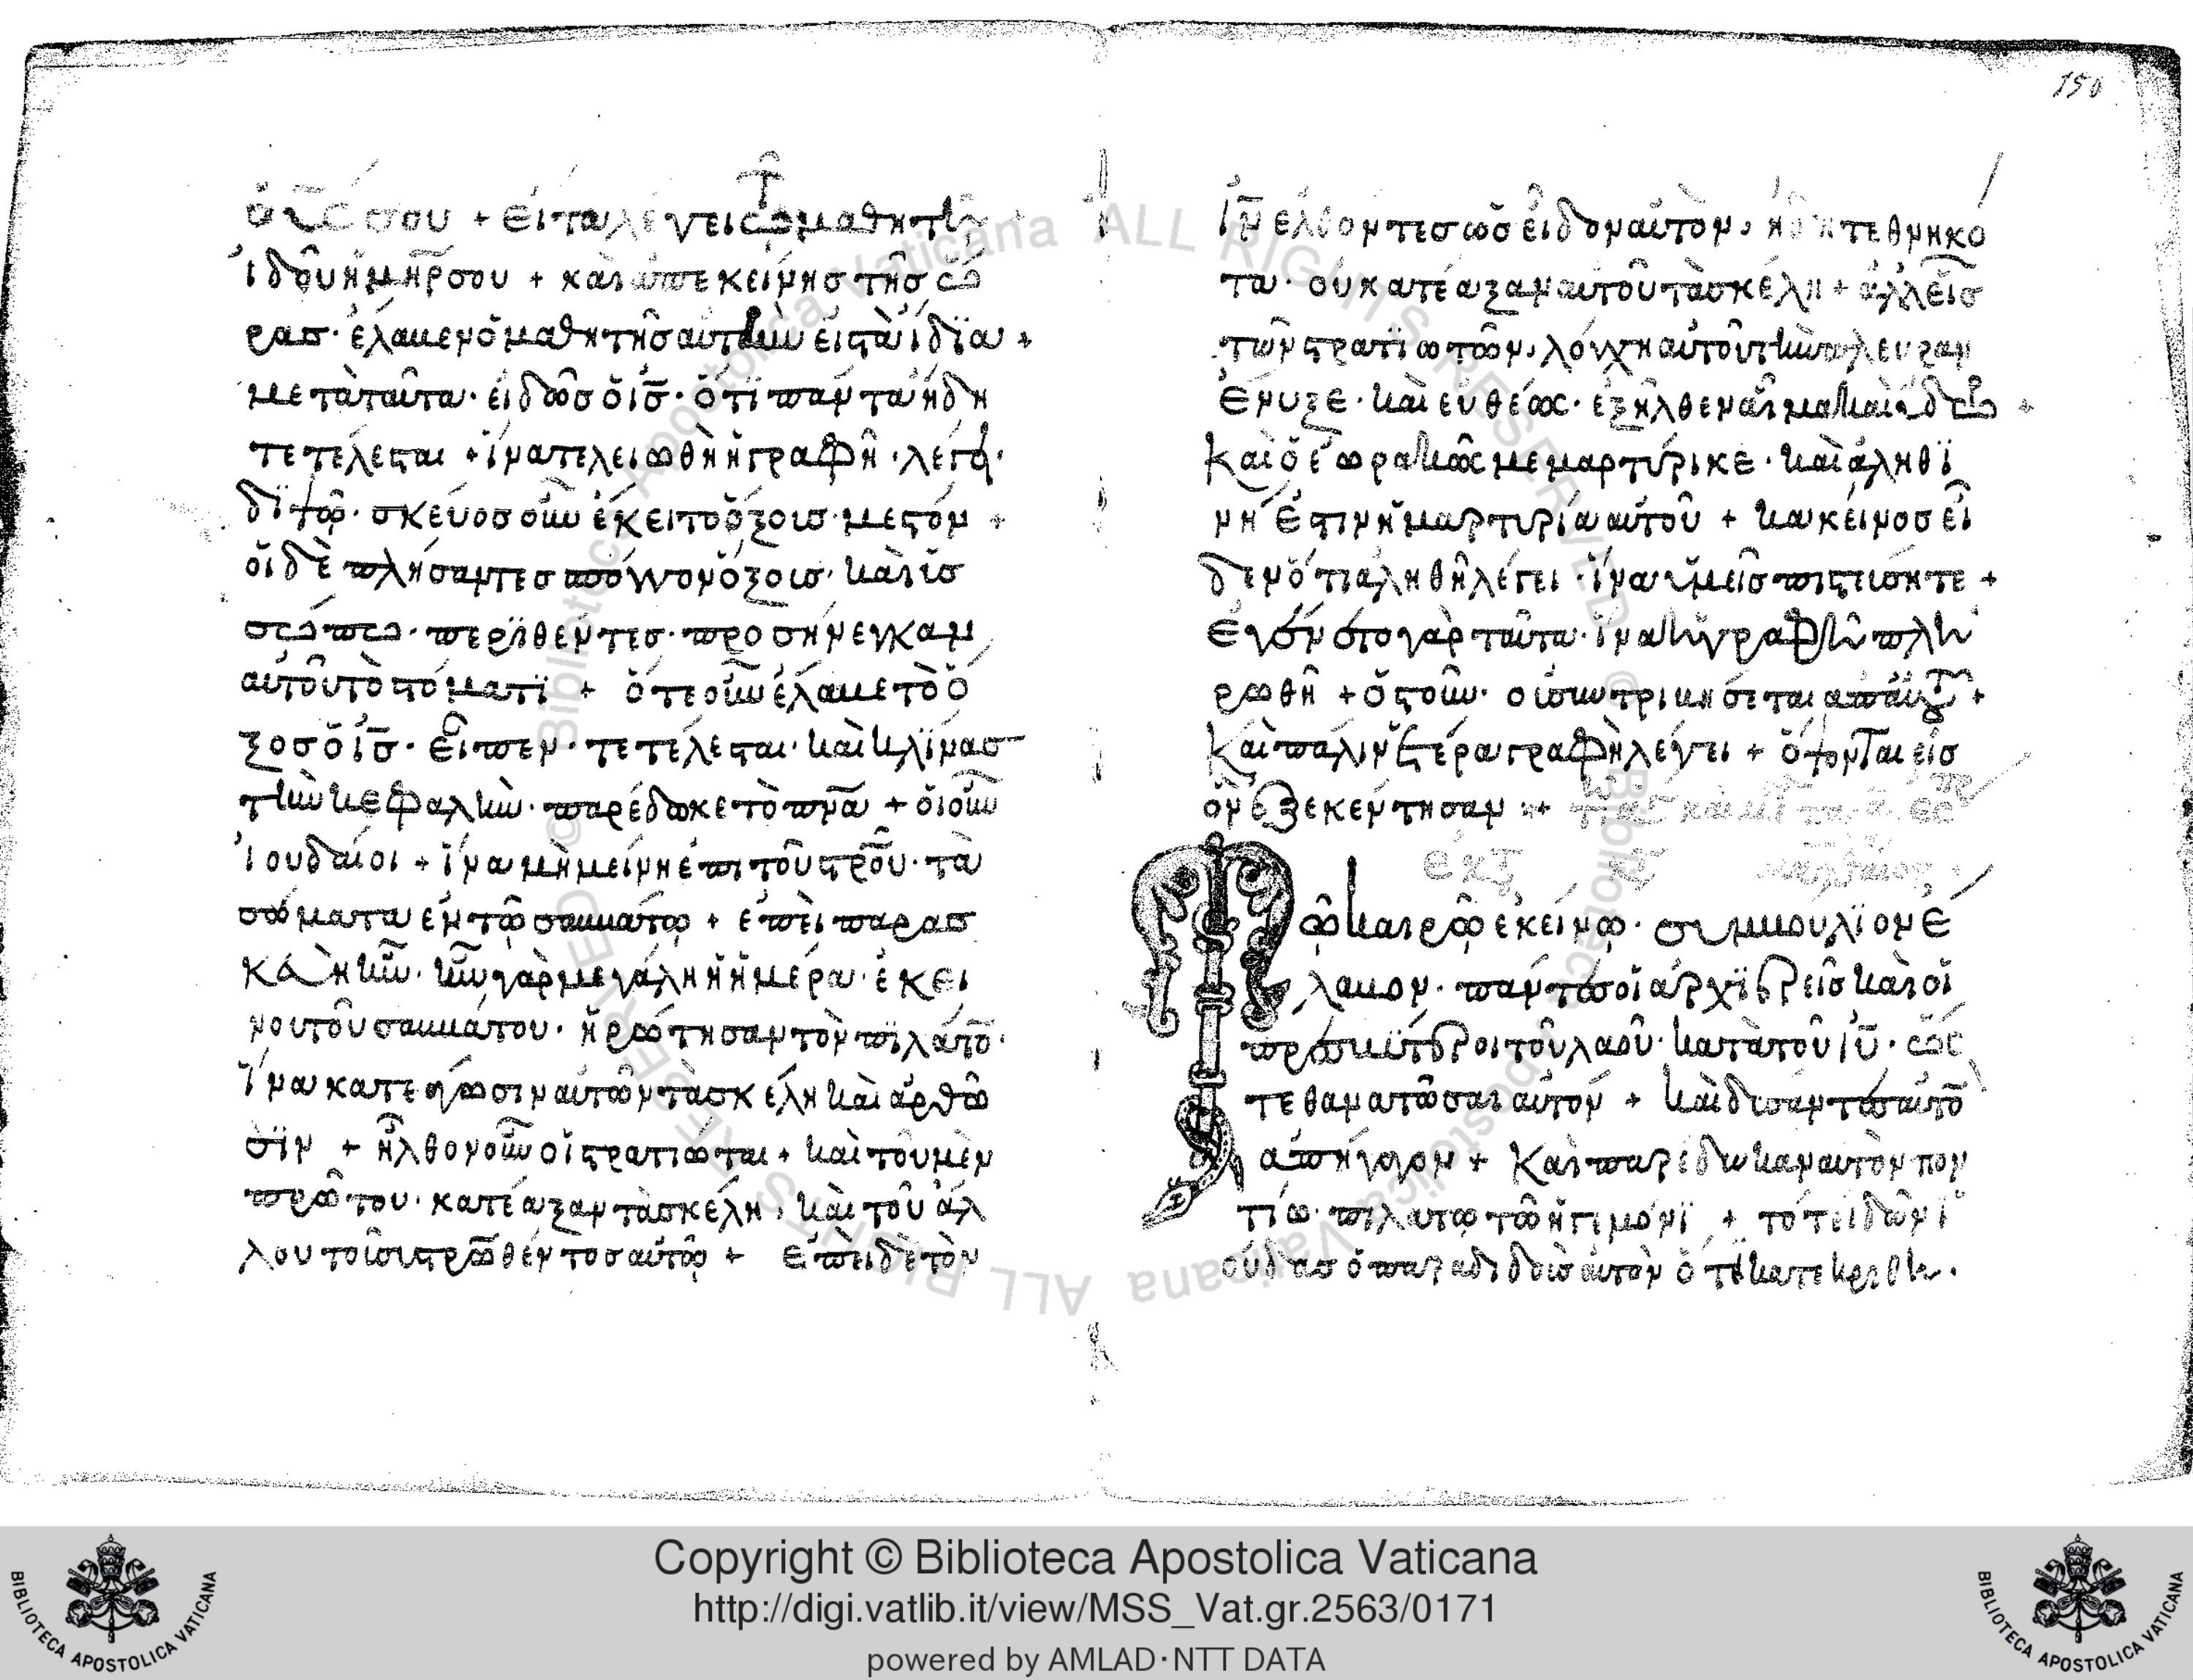 ὁ υς σου + εἶτα λέγει τῶ μαθητῆ +
ἰδοῦ ἡ μηρ σου + καὶ ἀπ εκείνης τῆς ὥ
ρας· ἔλαβεν ὁ μαθητὴς αυτὴν εἰς τὰ ἴδϊα +
μετὰ ταῦτα· εἰδῶς ὁ ις· ὅτϊ πάντα ἤδη
τετέλεσται + ἵνα τελειωθῆ ἡ γραφῆ· λέγει·
δϊψῶ· σκεύος οῦν ἔκειτο ὄξους μεστόν +
οἱ δὲ πλήσαντες σπόγγον ὄξους· καὶ ὑσ
σώπω· περϊθέντες· προσήνεγκαν
αυτοῦ τὸ στόματϊ + ὅτε οῦν έλαβε τὸ ὄ
ξος ὁ ις· εῖπεν· τετέλεσται· καὶ κλϊνας
τὴν κεφαλὴν· παρέδωκε τὸ πνα + ὁι οῦν
ἰουδαίοι + ἵνα μὴ μείνη ἐπι τοῦ στρου· τὰ
σώματα ἐν τῶ σαββάτω + ἐπεὶ παρασ
κεὴ ῆν· ῆν γὰρ μεγάλη ἡ ἡμέρα· ἐκεί
νου τοῦ σαββάτου· ἠρώτησαν τὸν πϊλάτο·
ἵνα κατεαγώσιν αυτῶν τὰ σκέλη καὶ ἀρθῶ
σϊν + ῆλθον οῦν οἱ στρατιώται + καὶ τοῦ μὲν
πρῶτου· κατέαξαν τὰ σκέλη, καὶ τοῦ ἄλ
λου τοῦ συστρωθέντος αὐτῶ + ἐπὶ δὲ τὸν
ιν ἐλθόντες ὡς εἶδον αὐτὸν, ἤδη τεθνηκό
τα· οὐ κατέαξαν αυτοῦ τὰ σκέλη + ἀλλ εῖς
τῶν στρατϊωτῶν, λόγχη αὐτοῦ τὴν πλευραν
ἔνυξε· καὶ εὐθέως· ἐξῆλθεν αἷμα καὶ ὕδωρ +
καὶ ὁ ἑωρακῶς μεμαρτύρικε· καὶ ἀληθϊ
νὴ ἐστιν ἡ μαρτυρία αὐτοῦ + κακείνος εἶ
δεν ὅτι ἀληθῆ λέγει· ἵνα ὑμεῖς πιστευσητε +
ἐγένετο γὰρ ταῦτα· ἵνα ἡ γραφῆ πλη
ρωθῆ + ὀστοῦν· οὐ συντριβήσεται ἀπ αυτου +
καὶ πάλιν ἑτέρα γραφὴ λέγει + ὄψονται εἰς
ὃν ἐξεκέντησαν :+
ῶ καιρῶ ἐκείνω· συμβούλϊον ἔ
λαβον· πάντες οἱ ἀρχϊερεῖς καὶ οἱ
πρεσβύτεροι τοῦ λαοῦ· κατὰ τοῦ ιυ· ὥς
τε θανατῶσαι αὐτόν + καὶ δισαντες αὐτὸ
ἀπήγαγον + καὶ παρέδωκαν αυτὸν πον
τίω· πιλάτω τῶ ἡγιμόνϊ + τότε ἰδὼν ἰ
ούδας ὁ παραδιδοὺς αυτὸν ὅτι κατεκρίθη.
150
Copyright © Biblioteca Apostolica Vaticana
http://digi.vatlib.it/view/MSS_Vat.gr.2563/0171
powered by AMLAD·NTT DATA
BIBLIOTECA APOSTOLICA VATICANA
BIBLIOTECA APOSTOLICA VATICANA